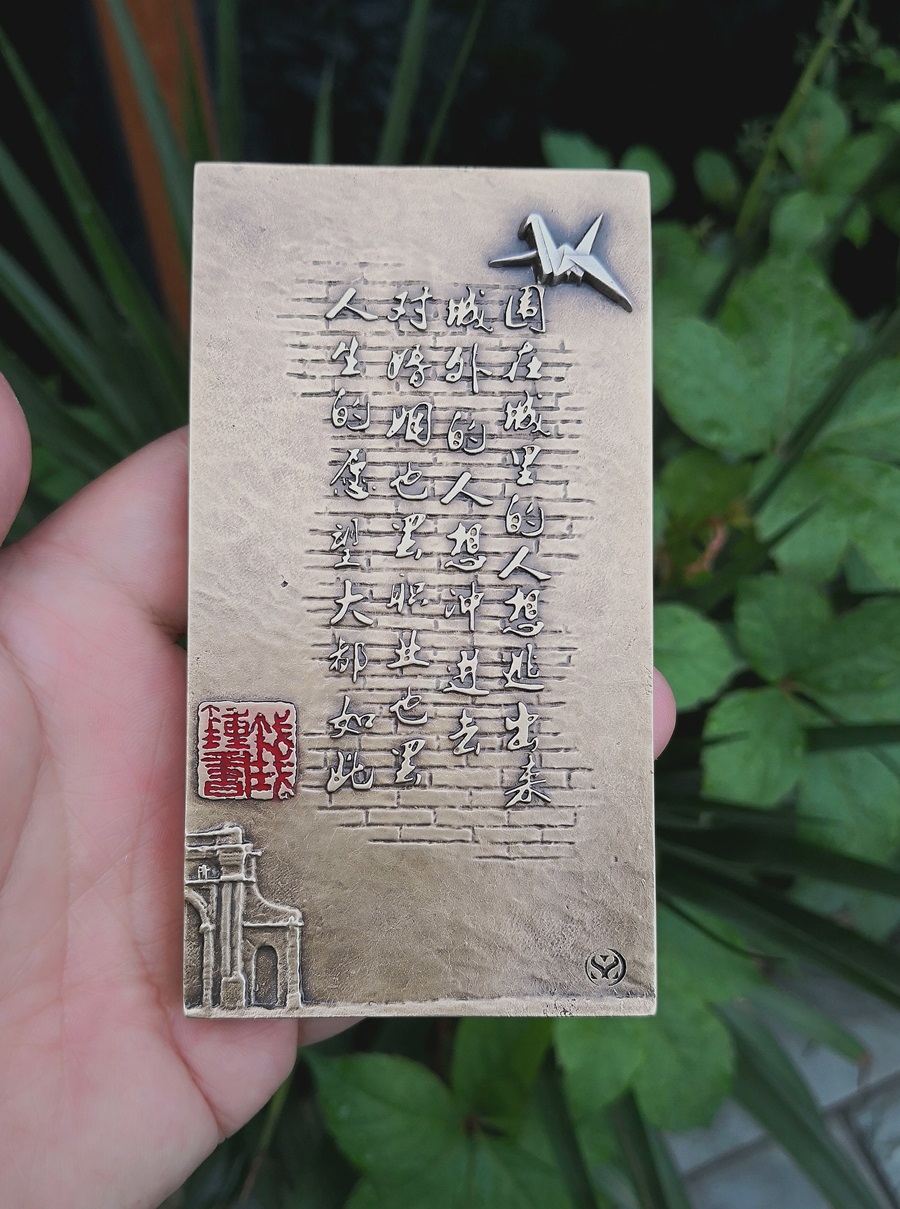 围在城里的人想逃出来
城外的人想冲进去
对婚姻也罢职业也罢
人生的愿望大都如此
钱锺書